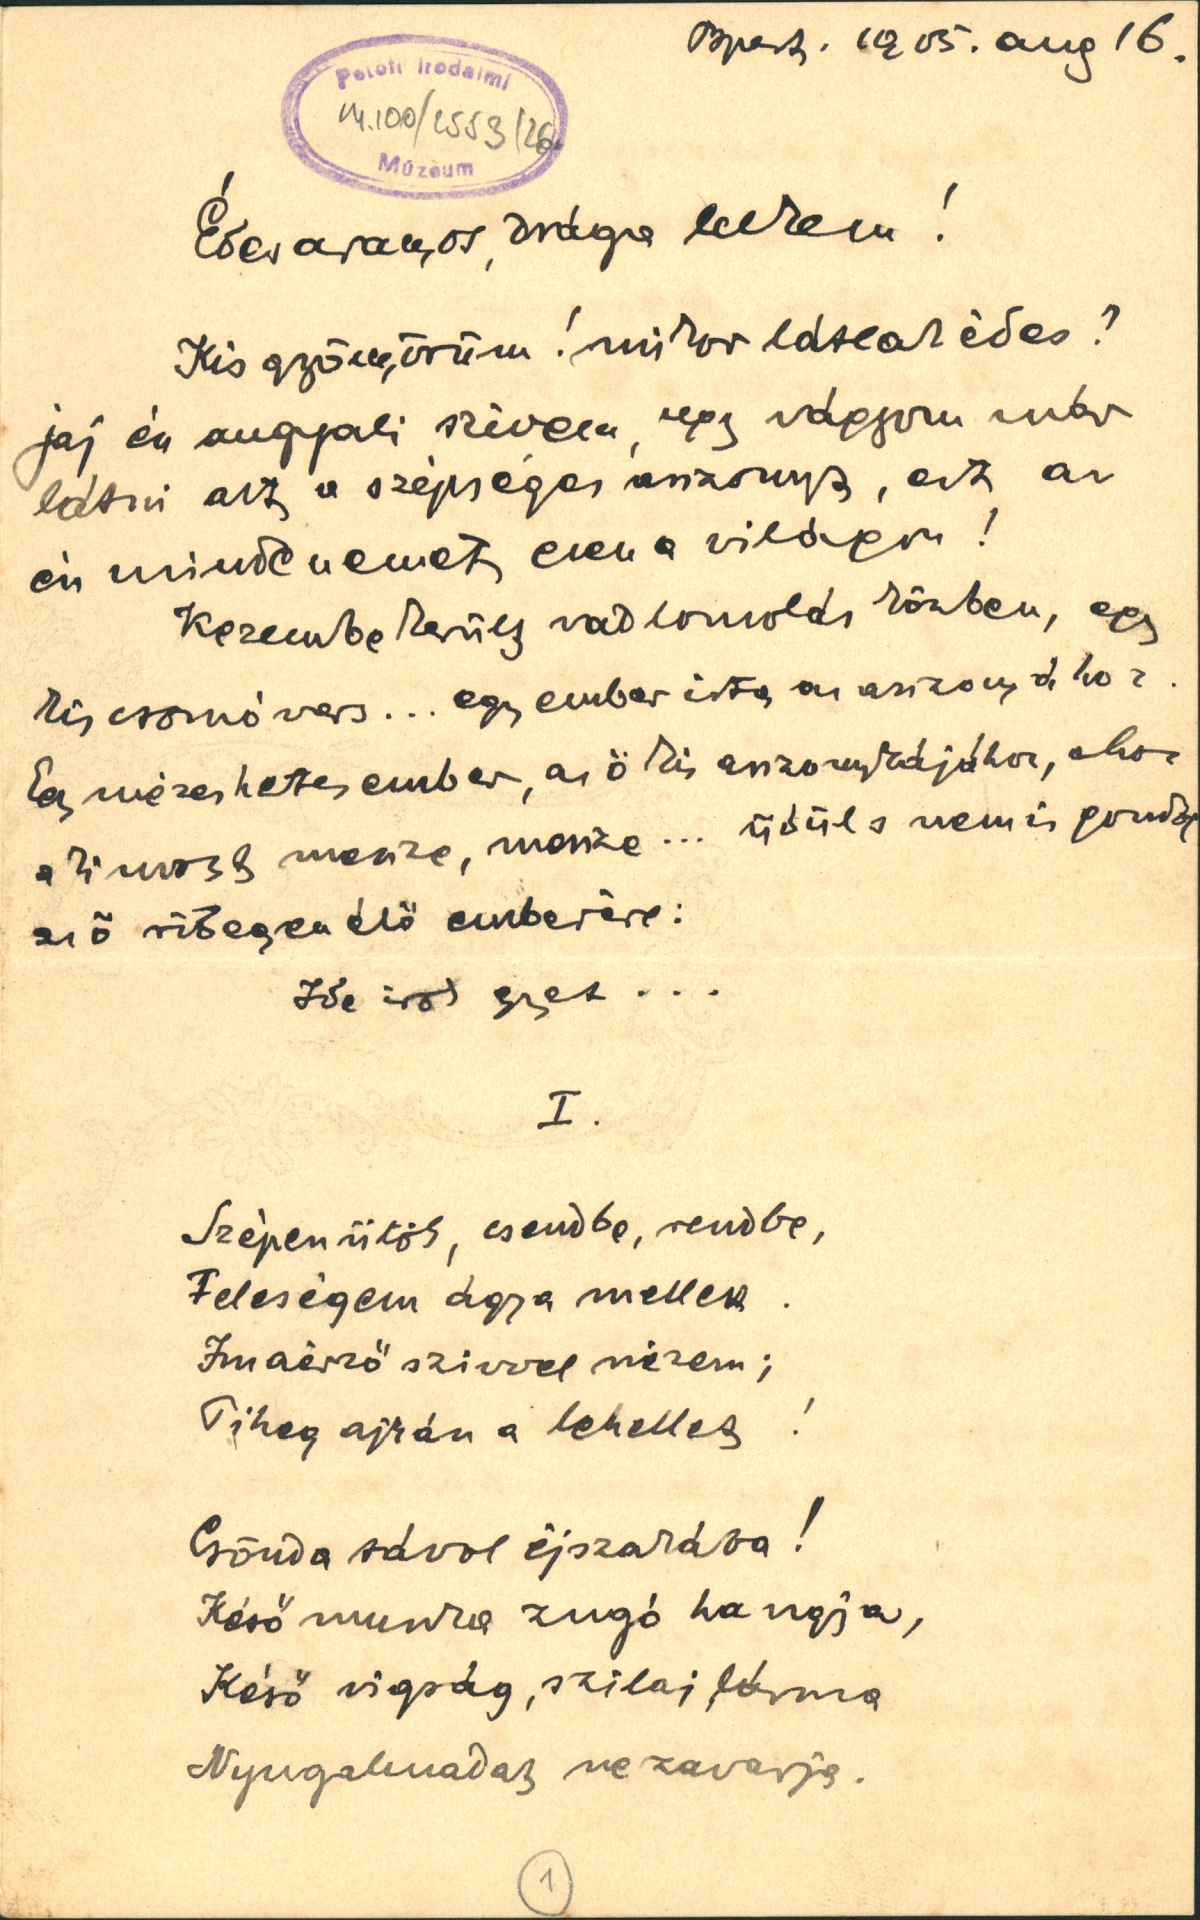 Bpest. 1905. aug 16.
Petőfi Irodalmi
M.100/2553/26
Múzeum
Édes aranyos, drága lelkem!
Kis gyönyörüm! mikor látlak édes?
jaj én angyali szivem, ugy vágyom már
látni azt a szépséges asszonyt, ezt az
én mindenemet ezen a világon!
Kezembe került vadlomolás közben, egy
kis csomó vers... egy ember irta az asszonyához.
Egy mézeshetes ember, az ő kis asszonykájához, ahoz
aki most messze, messze... üdül s nem is gondol
az ő rideg en élő emberére:
Ide irok egyet ...
I.
Szépen ülök, csendbe, rendbe,
Feleségem ágya mellett.
Imaérző szivvel nézem;
Piheg ajkán a lehellet!
Csönda távol éjszakába!
Késő munka zugó hangja,
Késő vigság, szilaj lárma
Nyugalmadat ne zavarja.
1